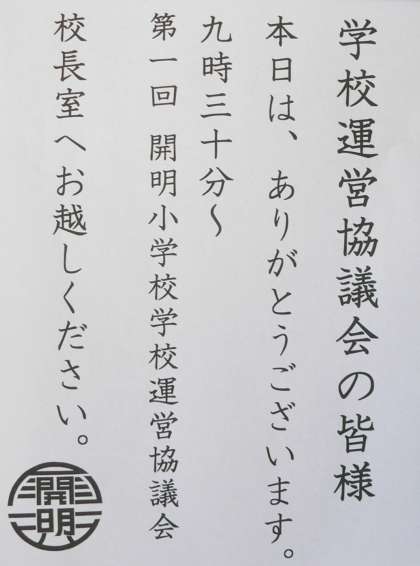 学校運営協議会の皆様
本日は、ありがとうございます。
九時三十分～
第一回 開明小学校学校運営協議会
校長室へお越しください。
開明